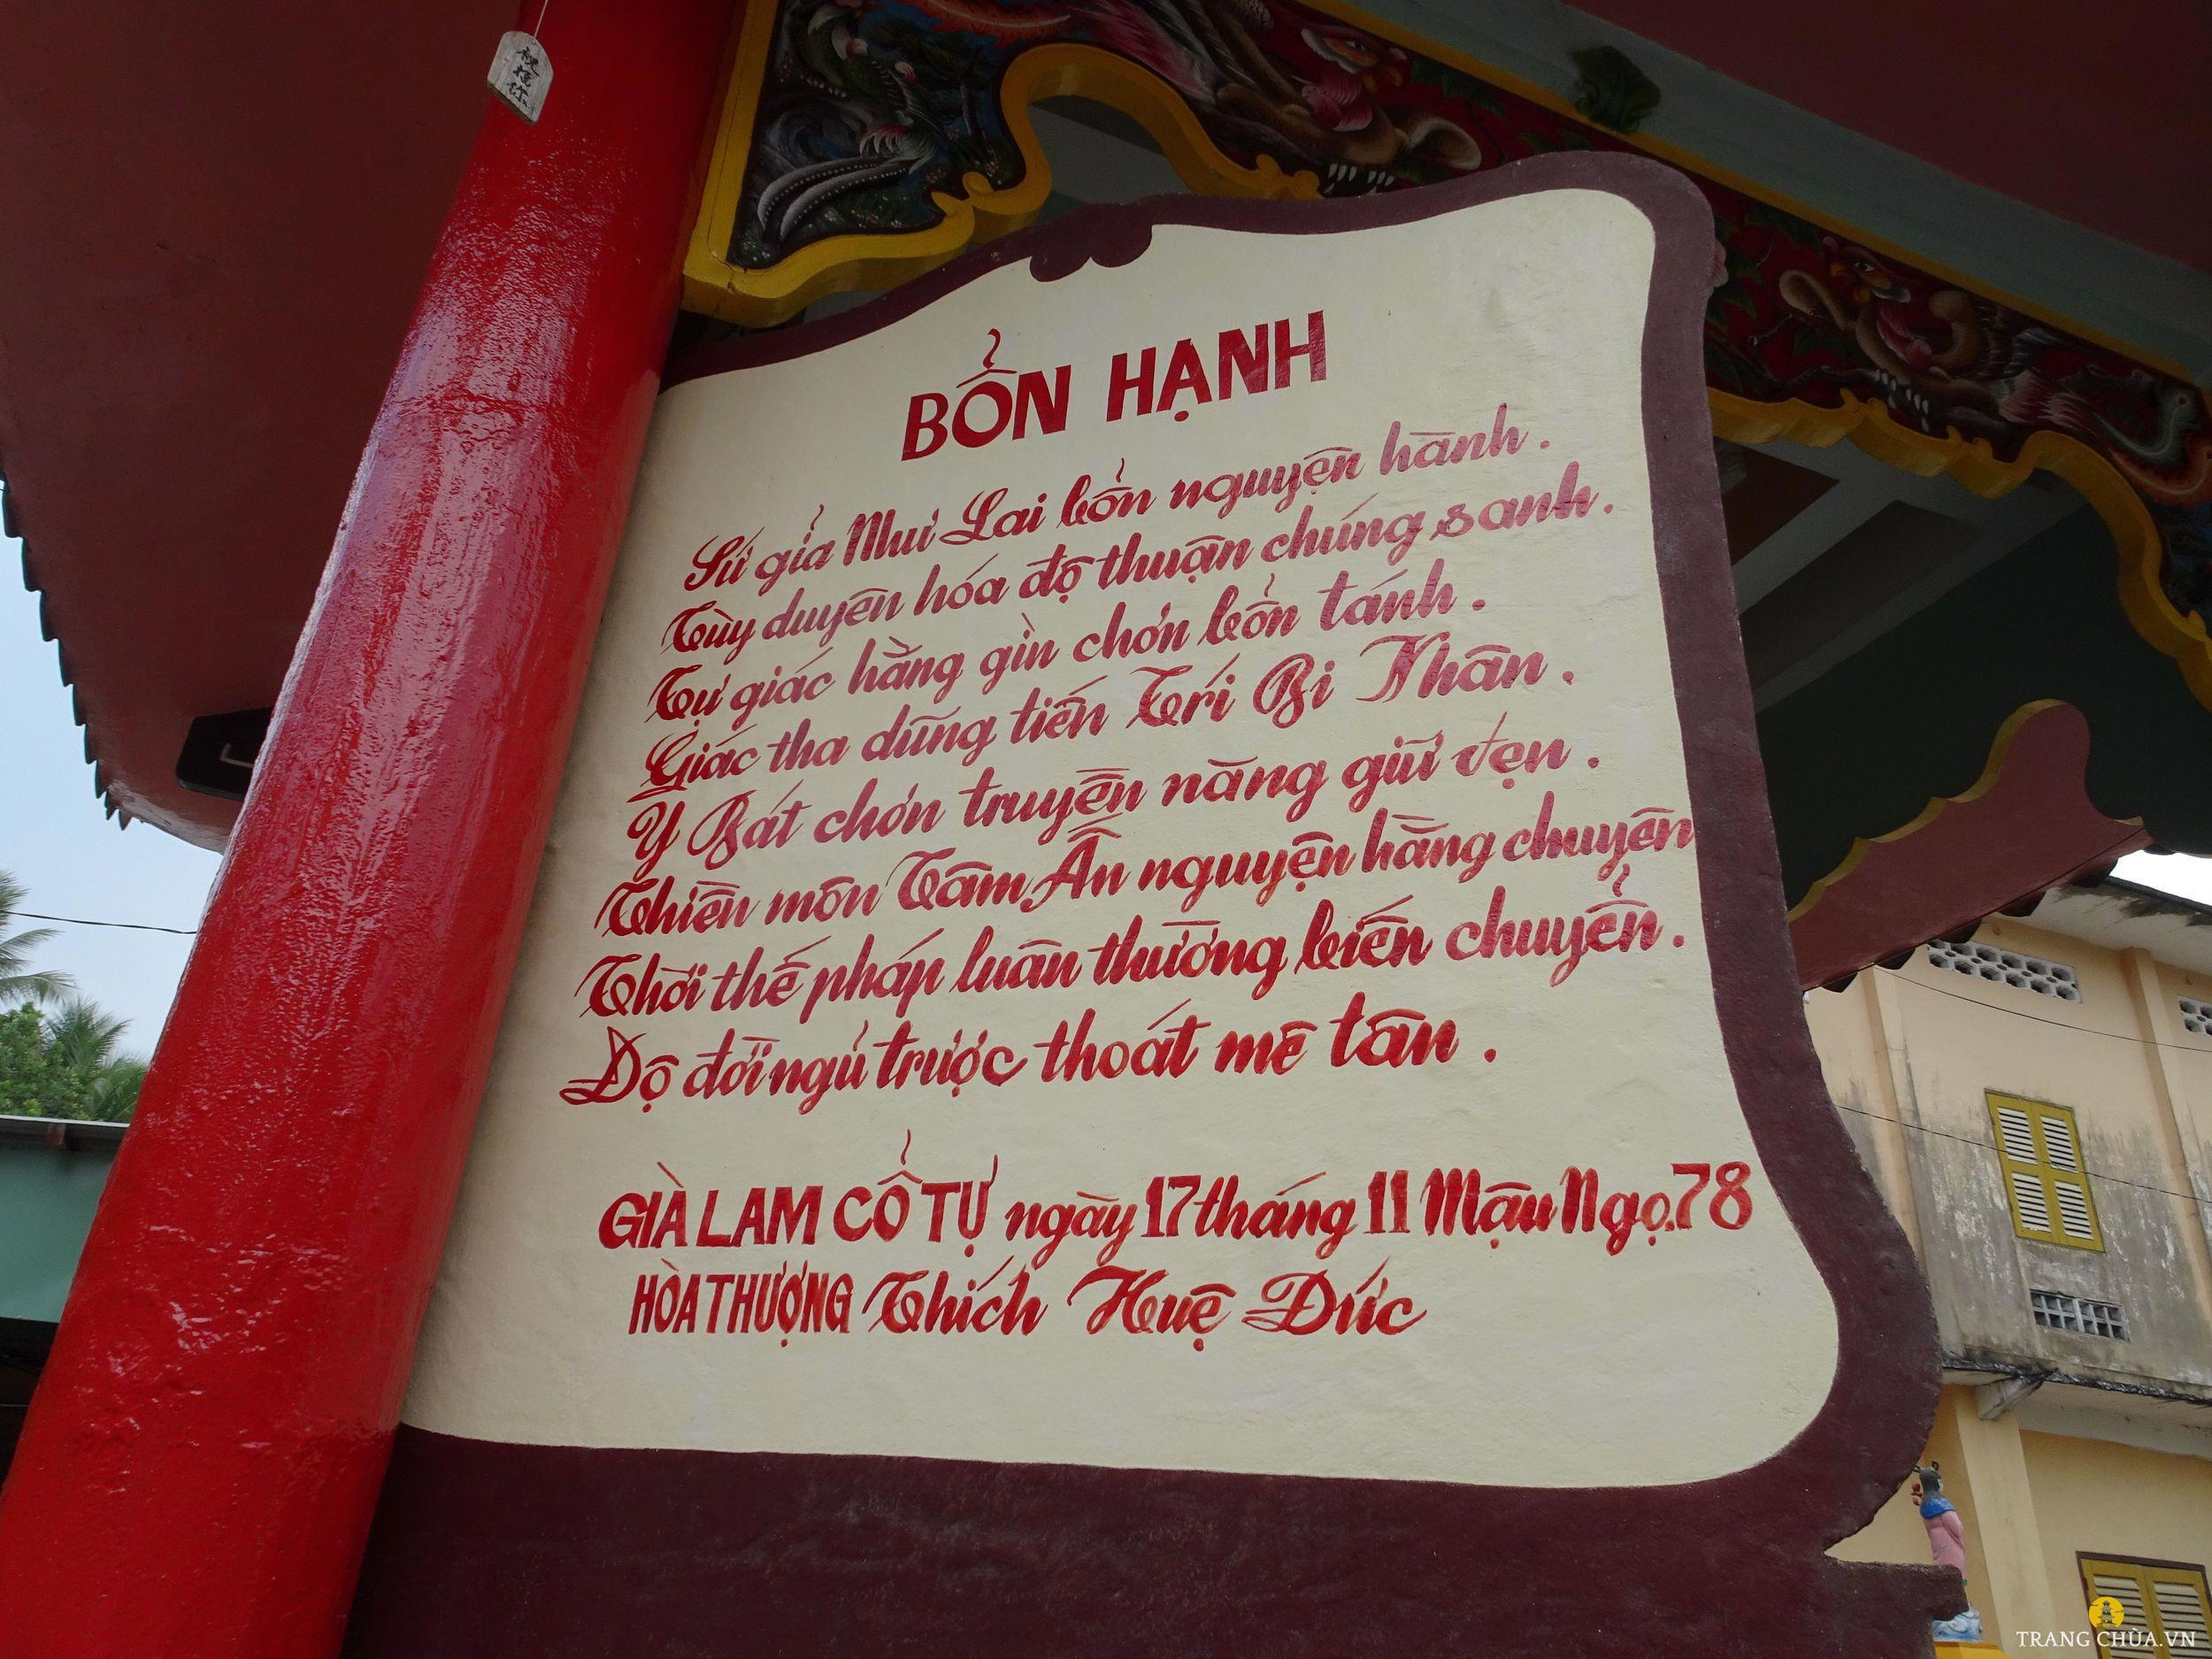 祝福你
BỔN HẠNH
Sứ giả Như Lai bổn nguyện hành.
Tùy duyên hóa độ thuận chúng sanh.
Tự giác hằng gìn chơn bổn tánh.
Giác tha dũng tiến Trí Bi Nhân.
Y Bát chơn truyền năng giữ vẹn.
Thiền môn Tâm Ấn nguyện hằng chuyên
Thời thế pháp luân thường biến chuyển.
Độ đời ngủ trược thoát mê tân.
GIÀ LAM CỔ TỰ ngày 17 tháng 11 Mậu Ngọ.78
HÒA THƯỢNG Thích Huệ Đức
TRANG CHÙA.VN